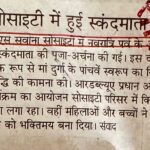 ोसाइटी में हुई स्कंदमाता
एस सवाना सोसाइटी में नवरात्रि पर्व के
की पूजा-अर्चना की गई। इस द
रूप से मां दुर्गा के पांचवें स्वरूप का वि
द्धि की कामना की। आरडब्ल्यूए प्रधान अ
क्रम का आयोजन सोसाइटी परिसर में कि
लगा रहा। वहीं महिलाओं और बच्चों ने
को भक्तिमय बना दिया। संवाद